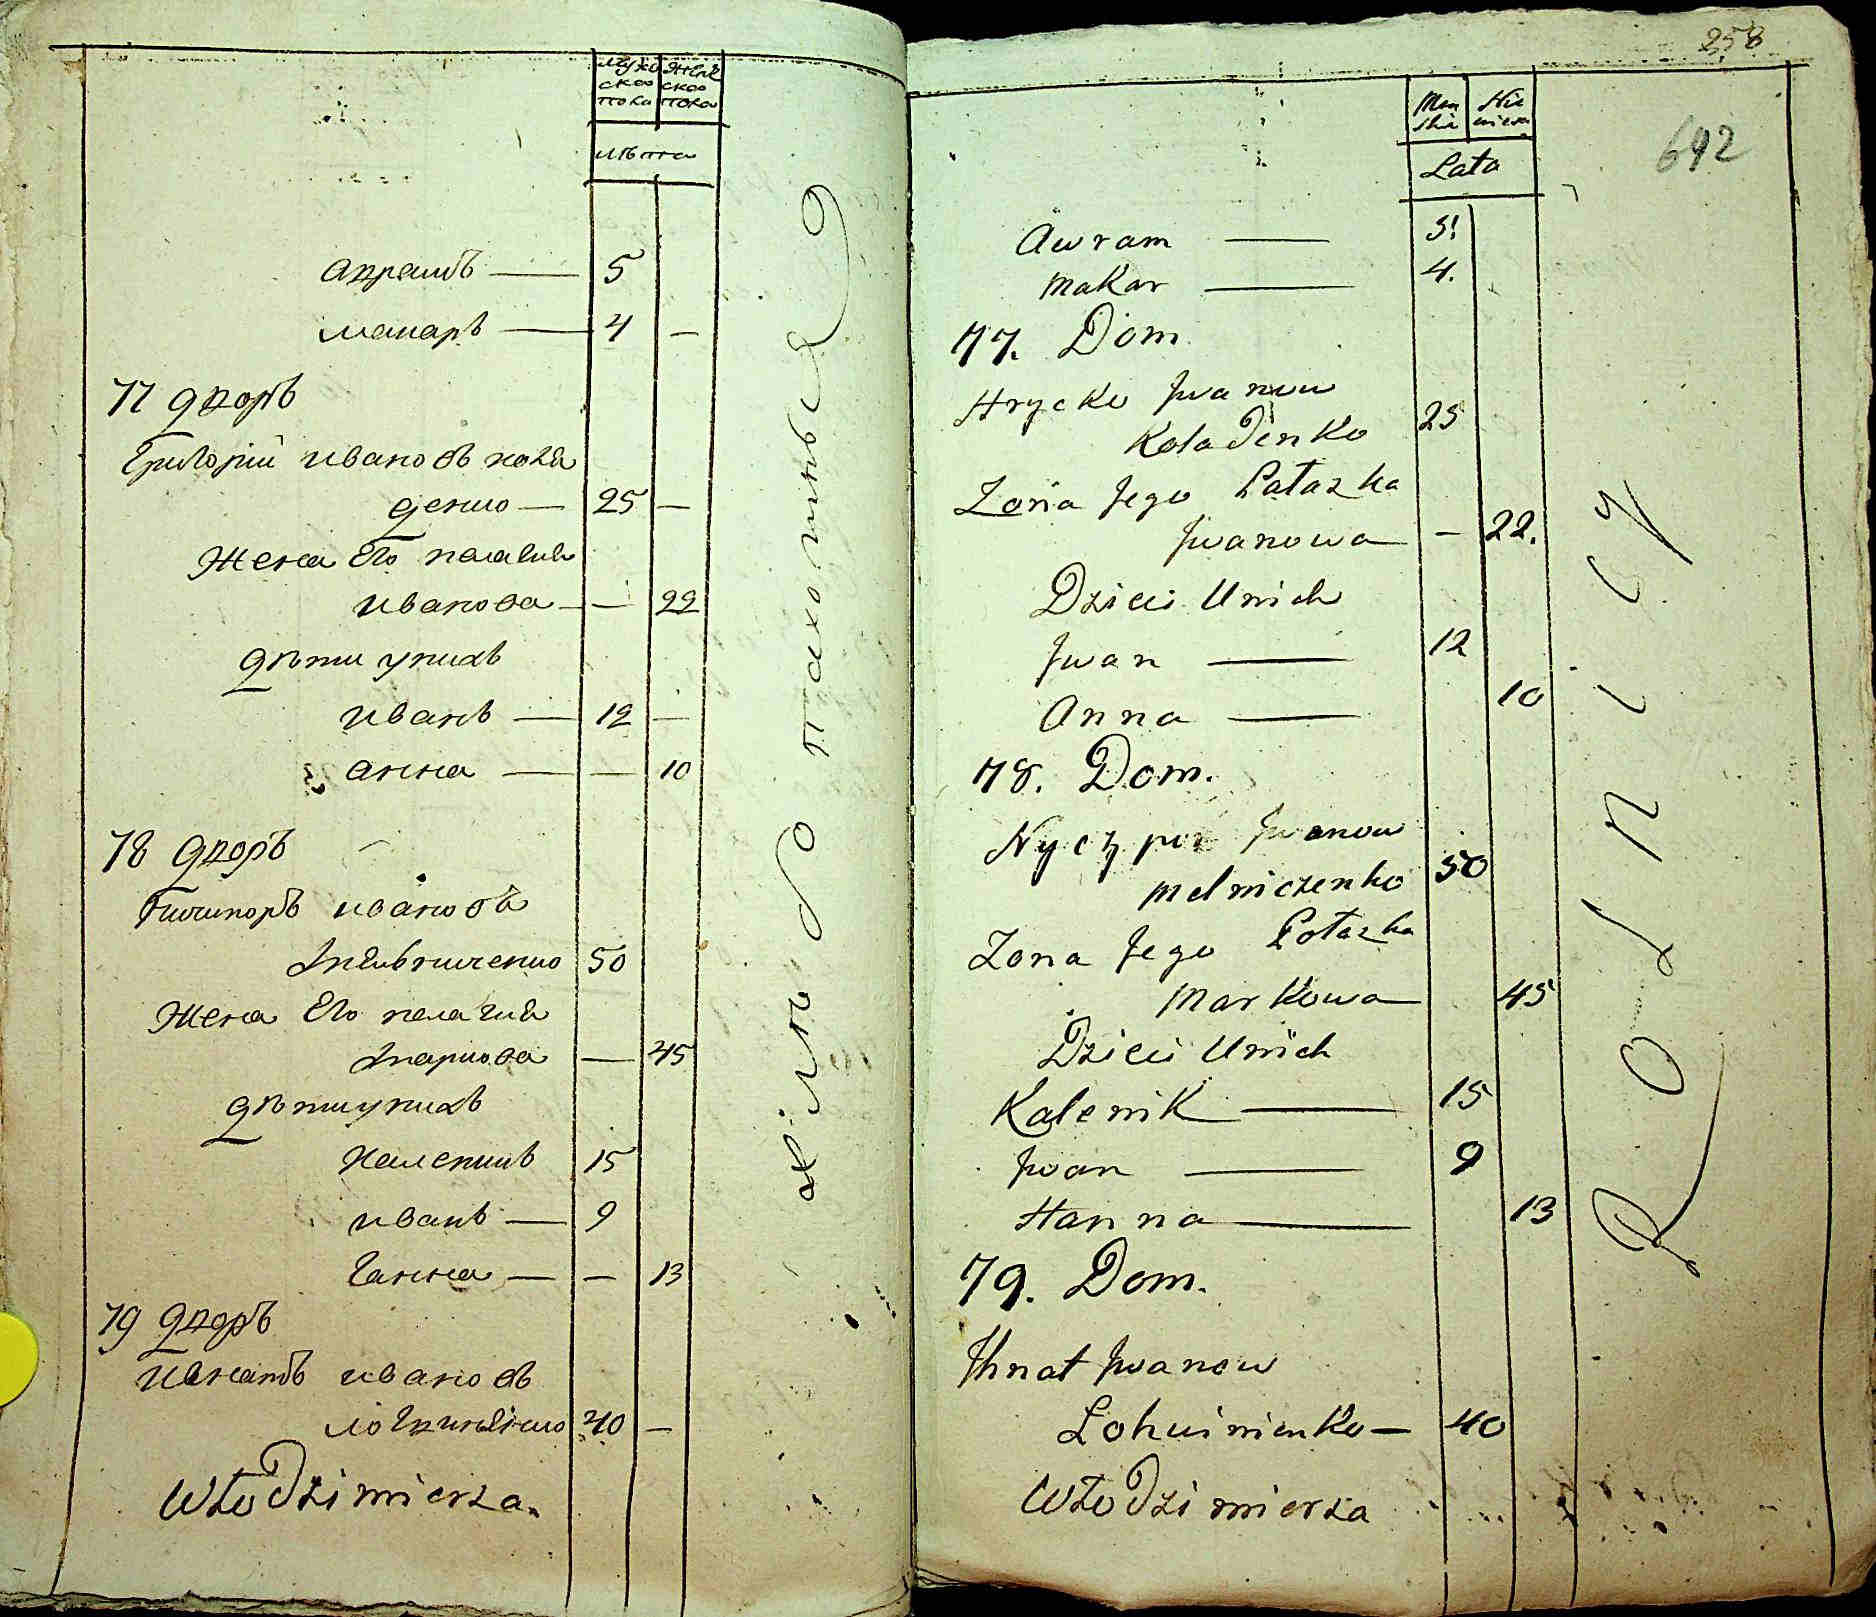 Мужескаго пола
Женскаго пола
лѣта
авраамъ — 5
макаръ — 4 —
77 дворъ
Григорій ивановъ коля
денко — 25 —
Жена Его пелагия
иванова — — 22
дѣти у нихъ
иванъ — 12 —
анна — — 10
78 дворъ
Ничипоръ ивановъ
Мельниченко 50
Жена Его пелагия
Маркова — 45
дѣти у нихъ
Каленикъ 15
иванъ — 9
Ганна — — 13
79 дворъ
Игнатъ ивановъ
логвиненко 40 —
Włodzimierza.
хлѣбопахотныя
258
692
Męn
skie
Nie
wiesc
Lata
Awram — 5.
Makar — 4.
77. Dom
Hrycko Jwanow
Koladenko 25
Zona Jego Pałazka
Jwanowa — 22.
Dzieci Unich
Jwan — 12
Anna — 10
78. Dom.
Nyczypor Jwanow
Melniczenko 50
Zona Jego Połazka
Markowa 45
Dzieci Unich
Kalenik — 15
Jwan — 9
Hanna — 13
79. Dom.
Jhnat Jwanow
Lohwinienko — 40
Włodzimierza
Rolniczy